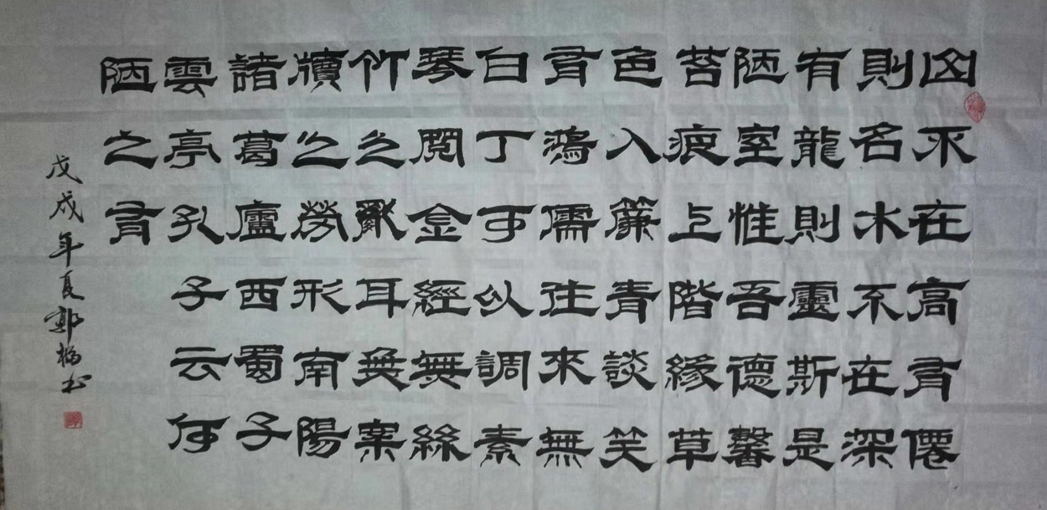 山不在高有僊
則名水不在深
有龍則靈斯是
陋室惟吾德馨
苔痕上階緣草
色入簾青談笑
有鴻儒往來無
白丁可以調素
琴閱金經無絲
竹之亂耳無案
牘之勞形南陽
諸葛廬西蜀子
雲亭孔子云何
陋之有
戊戌年夏郭书